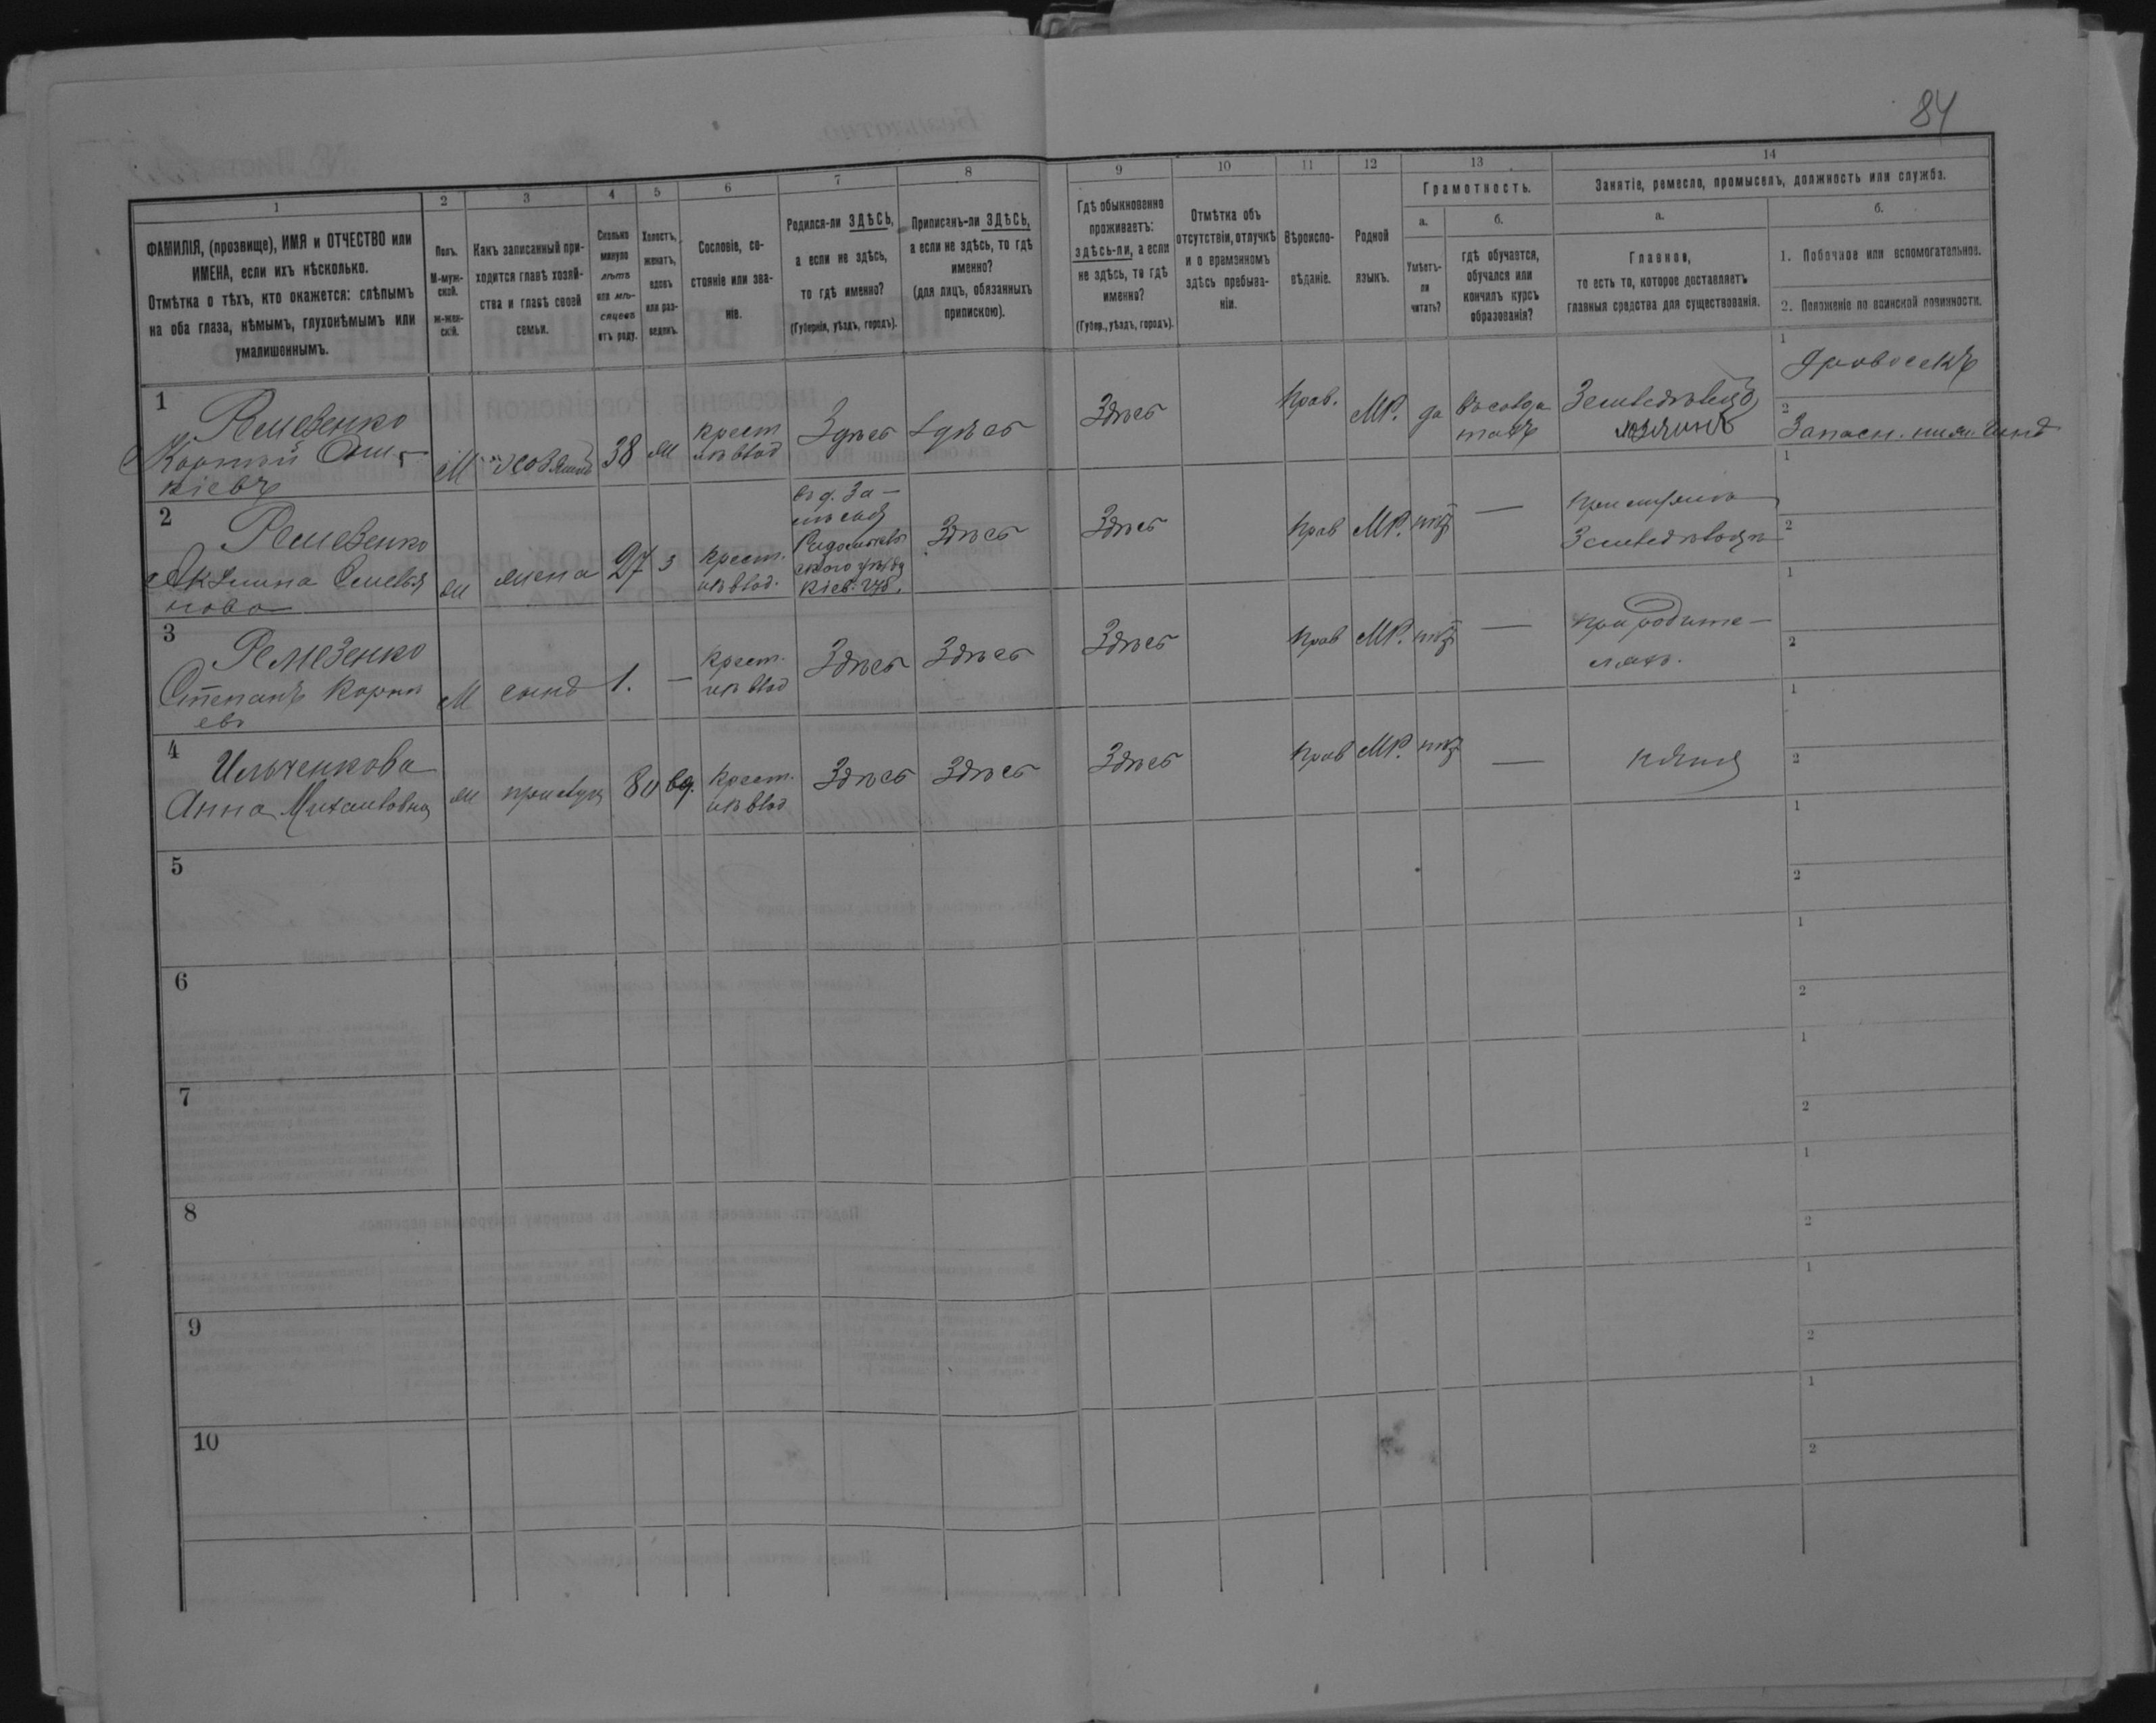 84
1
2
3
4
5
6
7
8
9
10
11
12
13
14
ФАМИЛІЯ, (прозвище), ИМЯ и ОТЧЕСТВО или
ИМЕНА, если ихъ нѣсколько.
Отмѣтка о тѣхъ, кто окажется: слѣпымъ
на оба глаза, нѣмымъ, глухонѣмымъ или
умалишеннымъ.
Полъ.
М-муж-
ской.
ж-жен-
скій.
Какъ записанный при-
ходится главѣ хозяй-
ства и главѣ своей
семьи.
Сколько
минуло
лѣтъ
или мѣ-
сяцевъ
отъ роду.
Холостъ,
женатъ,
вдовъ
или раз-
веденъ.
Сословіе, со-
стояніе или зва-
ніе.
Родился-ли ЗДѢСЬ,
а если не здѣсь,
то гдѣ именно?
(Губернія, уѣздъ, городъ).
Приписанъ-ли ЗДѢСЬ,
а если не здѣсь, то гдѣ
именно?
(для лицъ, обязанныхъ
припискою).
Гдѣ обыкновенно
проживаетъ:
здѣсь-ли, а если
не здѣсь, то гдѣ
именно?
(Губер., уѣздъ, городъ).
Отмѣтка объ
отсутствіи, отлучкѣ
и о временномъ
здѣсь пребыва-
ніи.
Вѣроиспо-
вѣданіе.
Родной
языкъ.
Грамотность.
а.
Умѣетъ-
ли
читать?
б.
гдѣ обучается,
обучался или
кончилъ курсъ
образованія?
Занятіе, ремесло, промыселъ, должность или служба.
а.
Главное,
то есть то, которое доставляетъ
главныя средства для существованія.
б.
1. Побочное или вспомогательное.
2. Положеніе по воинской повинности.
1
Ремезенко
Корній
кіевъ
М
хозяинъ
38
ж
крест
из влад
Здѣсь
Здѣсь
Здѣсь
Прав.
МР.
да
въ солда
тахъ
Земледѣлецъ
хозяинъ
1
Дровосекъ
2
Запасн. ниж. чинъ
2
Ремезенко
Акулина
нова
ж
жена
27
з
крест.
из влад.
въ д. За-
Радомысль
ского уѣзда
Кіев. губ.
Здѣсь
Здѣсь
Прав
МР.
нѣтъ
—
при мужѣ
Земледѣльцѣ
1
2
3
Ремезенко
Степанъ Корні
евъ
М
сынъ
1.
—
Крест.
из влад
Здѣсь
Здѣсь
Здѣсь
Прав
МР.
нѣтъ
—
при родите-
ляхъ.
1
2
4
Ильченкова
Анна Михаиловна
ж
прислуга
80
вд.
Крест.
из влад
Здѣсь
Здѣсь
Здѣсь
Прав
МР.
нѣтъ
—
няня
1
2
5
1
2
6
1
2
7
1
2
8
1
2
9
1
2
10
1
2